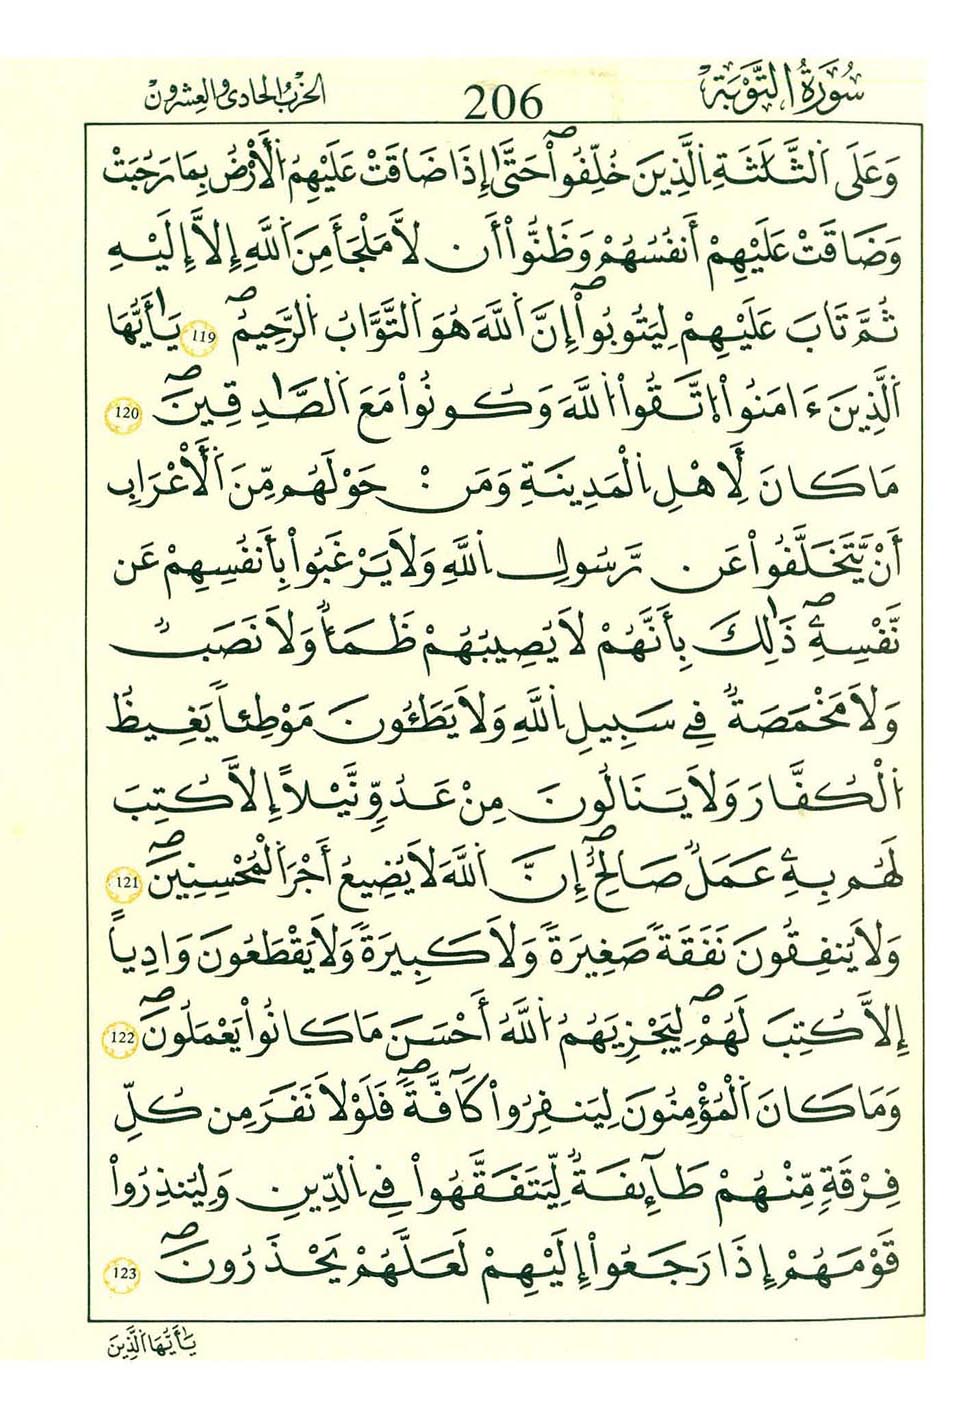 سُورَةُ التَّوْبَة 206 الحزب الحادى والعشرون
وَعَلَى اَ۬لثَّلَٰثَةِ اِ۬لذِينَ خُلِّفُواْ حَتَّىٰٓ إِذَا ضَاقَتْ عَلَيْهِمُ اُ۬لَارْضُ بِمَا رَحُبَتْ
وَضَاقَتْ عَلَيْهِمْ أَنفُسُهُمْ وَظَنُّواْ أَن لاَّ مَلْجَأَ مِنَ اَ۬للَّهِ إِلاَّ إِلَيْهِ
ثُمَّ تَابَ عَلَيْهِمْ لِيَتُوبُواْ إِنَّ اَ۬للَّهَ هُوَ اَ۬لتَّوَّابُ اُ۬لرَّحِيمُ 119 يَٰٓأَيُّهَا
اَ۬لذِينَ ءَامَنُواْ اُ۪تَّقُواْ اُ۬للَّهَ وَكُونُواْ مَعَ اَ۬لصَّٰدِقِينَ 120
مَا كَانَ لِأَهْلِ اِ۬لْمَدِينَةِ وَمَنْ حَوْلَهُم مِّنَ اَ۬لَاعْرَابِ
أَنْ يَّتَخَلَّفُواْ عَن رَّسُولِ اِ۬للَّهِ وَلاَ يَرْغَبُواْ بِأَنفُسِهِمْ عَن
نَّفْسِهِۦ ذَٰلِكَ بِأَنَّهُمْ لاَ يُصِيبُهُمْ ظَمَأٌ وَلاَ نَصَبٌ
وَلاَ مَخْمَصَةٌ فِے سَبِيلِ اِ۬للَّهِ وَلاَ يَطَـُٔونَ مَوْطِئاً يَغِيظُ
اُ۬لْكُفَّارَ وَلاَ يَنَالُونَ مِنْ عَدُوٍّ نَّيْلاً إِلاَّ كُتِبَ
لَهُم بِهِۦ عَمَلٌ صَٰلِحٌ إِنَّ اَ۬للَّهَ لاَ يُضِيعُ أَجْرَ اَ۬لْمُحْسِنِينَ 121
وَلاَ يُنفِقُونَ نَفَقَةً صَغِيرَةً وَلاَ كَبِيرَةً وَلاَ يَقْطَعُونَ وَادِياً
إِلاَّ كُتِبَ لَهُمْ لِيَجْزِيَهُمُ اُ۬للَّهُ أَحْسَنَ مَا كَانُواْ يَعْمَلُونَ 122
وَمَا كَانَ اَ۬لْمُؤْمِنُونَ لِيَنفِرُواْ كَآفَّةً فَلَوْلاَ نَفَرَ مِن كُلِّ
فِرْقَةٍ مِّنْهُمْ طَآئِفَةٌ لِّيَتَفَقَّهُواْ فِے اِ۬لدِّينِ وَلِيُنذِرُواْ
قَوْمَهُمْ إِذَا رَجَعُواْ إِلَيْهِمْ لَعَلَّهُمْ يَحْذَرُونَ 123
يَٰٓأَيُّهَا اَ۬لذِينَ